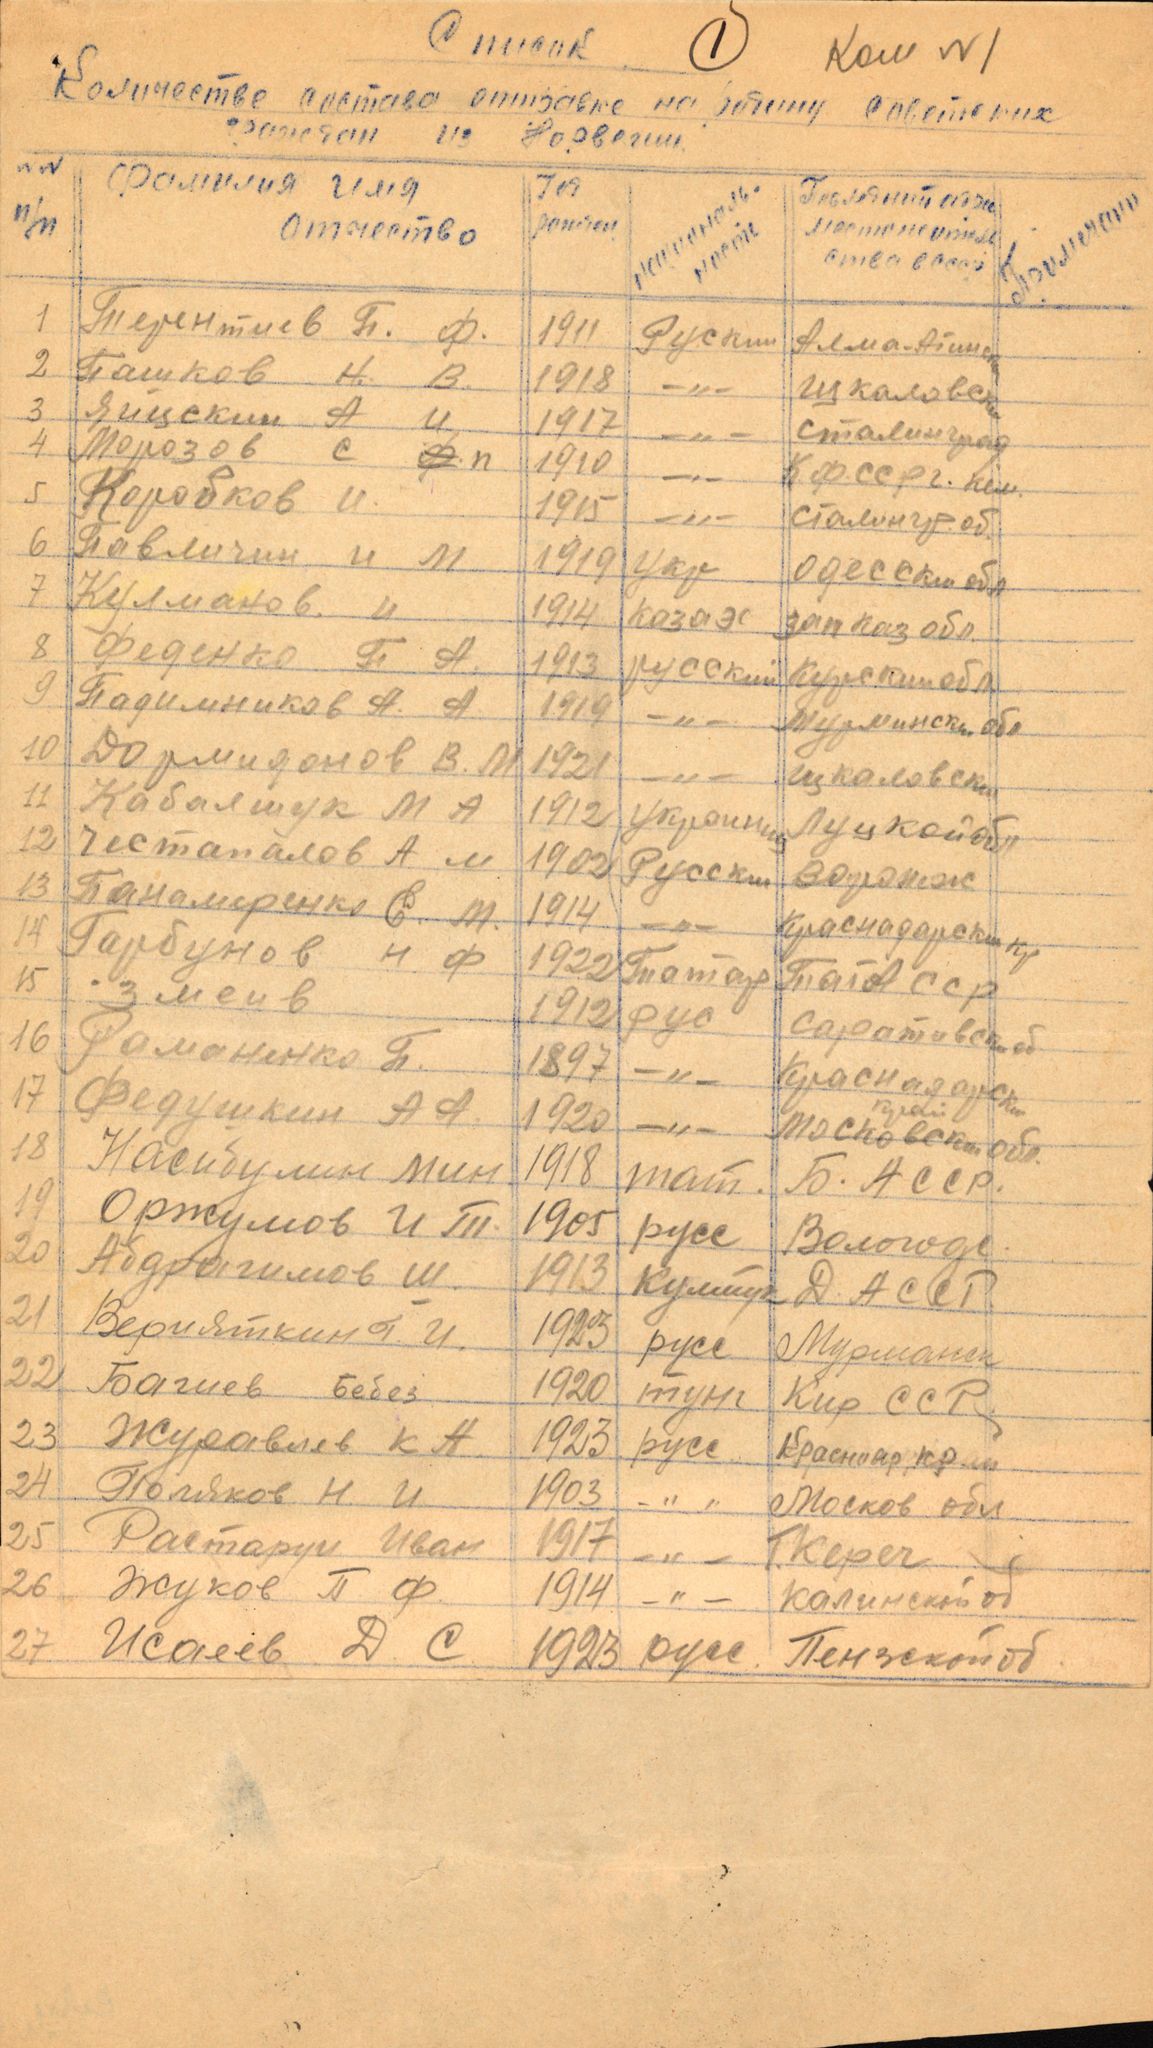 Список ① Ком N1
Количестве состава отправке на родину советских
граждан из Норвегии.
NN п/п Фамилия Имя Отчество Год рожден. национальность Последний адрес местожительства в СССР Примечани
1 Терентиев П. Ф. 1911 Руский Алма-Атинск
2 Пашков Н. В. 1918 -"- Щкаловски
3 Яицский А И 1917 -"- Сталинград
4 Морозов С П 1910 -"- К.Ф.ССР г. Кем.
5 Коробков И. 1915 -"- Сталингр об.
6 Павличин И М 1919 Укр Одесский обл
7 Кулманов. И 1914 Казах Зап Каз обл.
8 Феденко П А. 1913 русский Курский обл.
9 Падимников А. А 1919 -"- Мурмински обл
10 Дормидонов В. М 1921 -"- Щкаловски
11 Кабалшук М А 1912 Украинец Луцкой обл
12 Честапалов А М 1902 Русский Воронеж
13 Панамеренко Е. М. 1914 -"- Краснадарский кр
14 Гарбунов Н Ф 1922 Татар ТатАССР
15 Змеив 1912 рус Саратовской об
16 Романенко П. 1897 -"- Краснадарски край
17 Федушкин А А. 1920 -"- Московски обл.
18 Насибулин Мин 1918 тат. Б. АССР.
19 Оржумов И Т. 1905 русс Вологодс.
20 Абдрагимов Ш. 1913 Кумык Д. АССР
21 Верияткин П. И. 1923 русс Мурманск
22 Багиев Бебез 1920 тунг Кир ССР.
23 Журавлев К А 1923 русс Краснодар. край
24 Поляков Н И 1903 -" " Москов обл
25 Растаруи Иван 1917 -"- Г. Кереч
26 Жуков П Ф. 1914 -"- Калинской об
27 Исаеев Д С 1923 русс. Пензской об.